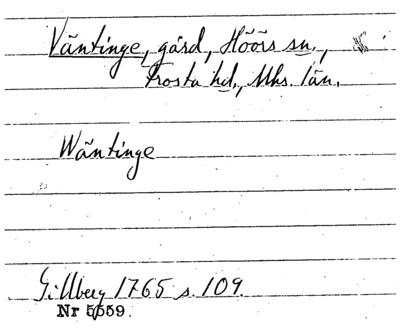 Väntinge, gård, Höörs sn.,
Frosta hd., Mhs. län.
Wäntinge
Gillberg 1765 s. 109.
Nr 5559.